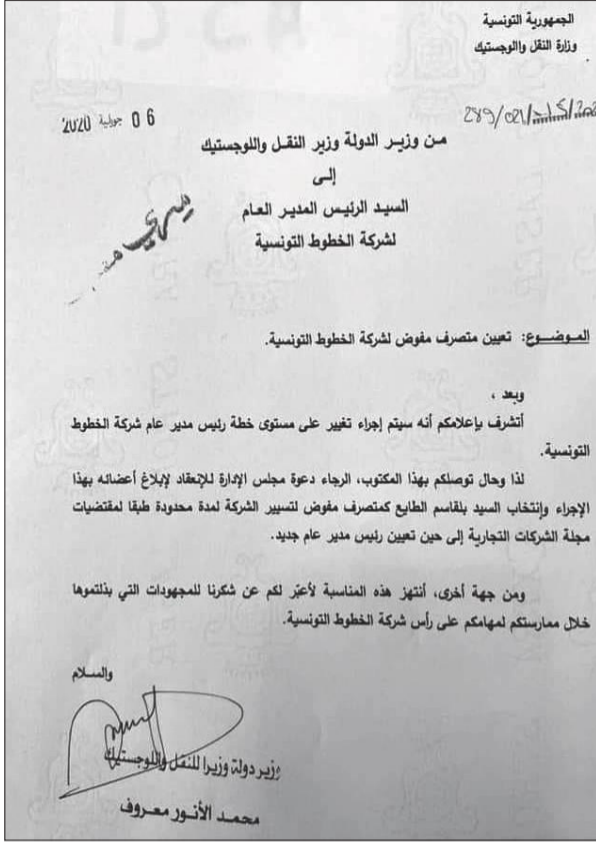 الجمهورية التونسية
وزارة النقل واللوجستيك
06 جويلية 2020
من وزير الدولة وزير النقل واللوجستيك
إلى
السيد الرئيس المدير العام
لشركة الخطوط التونسية
سري
الموضوع: تعيين متصرف مفوض لشركة الخطوط التونسية.
وبعد ،
أتشرف بإعلامكم أنه سيتم إجراء تغيير على مستوى خطة رئيس مدير عام شركة الخطوط
التونسية.
لذا وحال توصلكم بهذا المكتوب، الرجاء دعوة مجلس الإدارة للإنعقاد لإبلاغ أعضائه بهذا
الإجراء وإنتخاب السيد بلقاسم الطايع كمتصرف مفوض لتسيير الشركة لمدة محدودة طبقا لمقتضيات
مجلة الشركات التجارية إلى حين تعيين رئيس مدير عام جديد.
ومن جهة أخرى، أنتهز هذه المناسبة لأعبّر لكم عن شكرنا للمجهودات التي بذلتموها
خلال ممارستكم لمهامكم على رأس شركة الخطوط التونسية.
والسلام
وزير دولة وزيرا للنقل واللوجستيك
محمد الأنور معروف